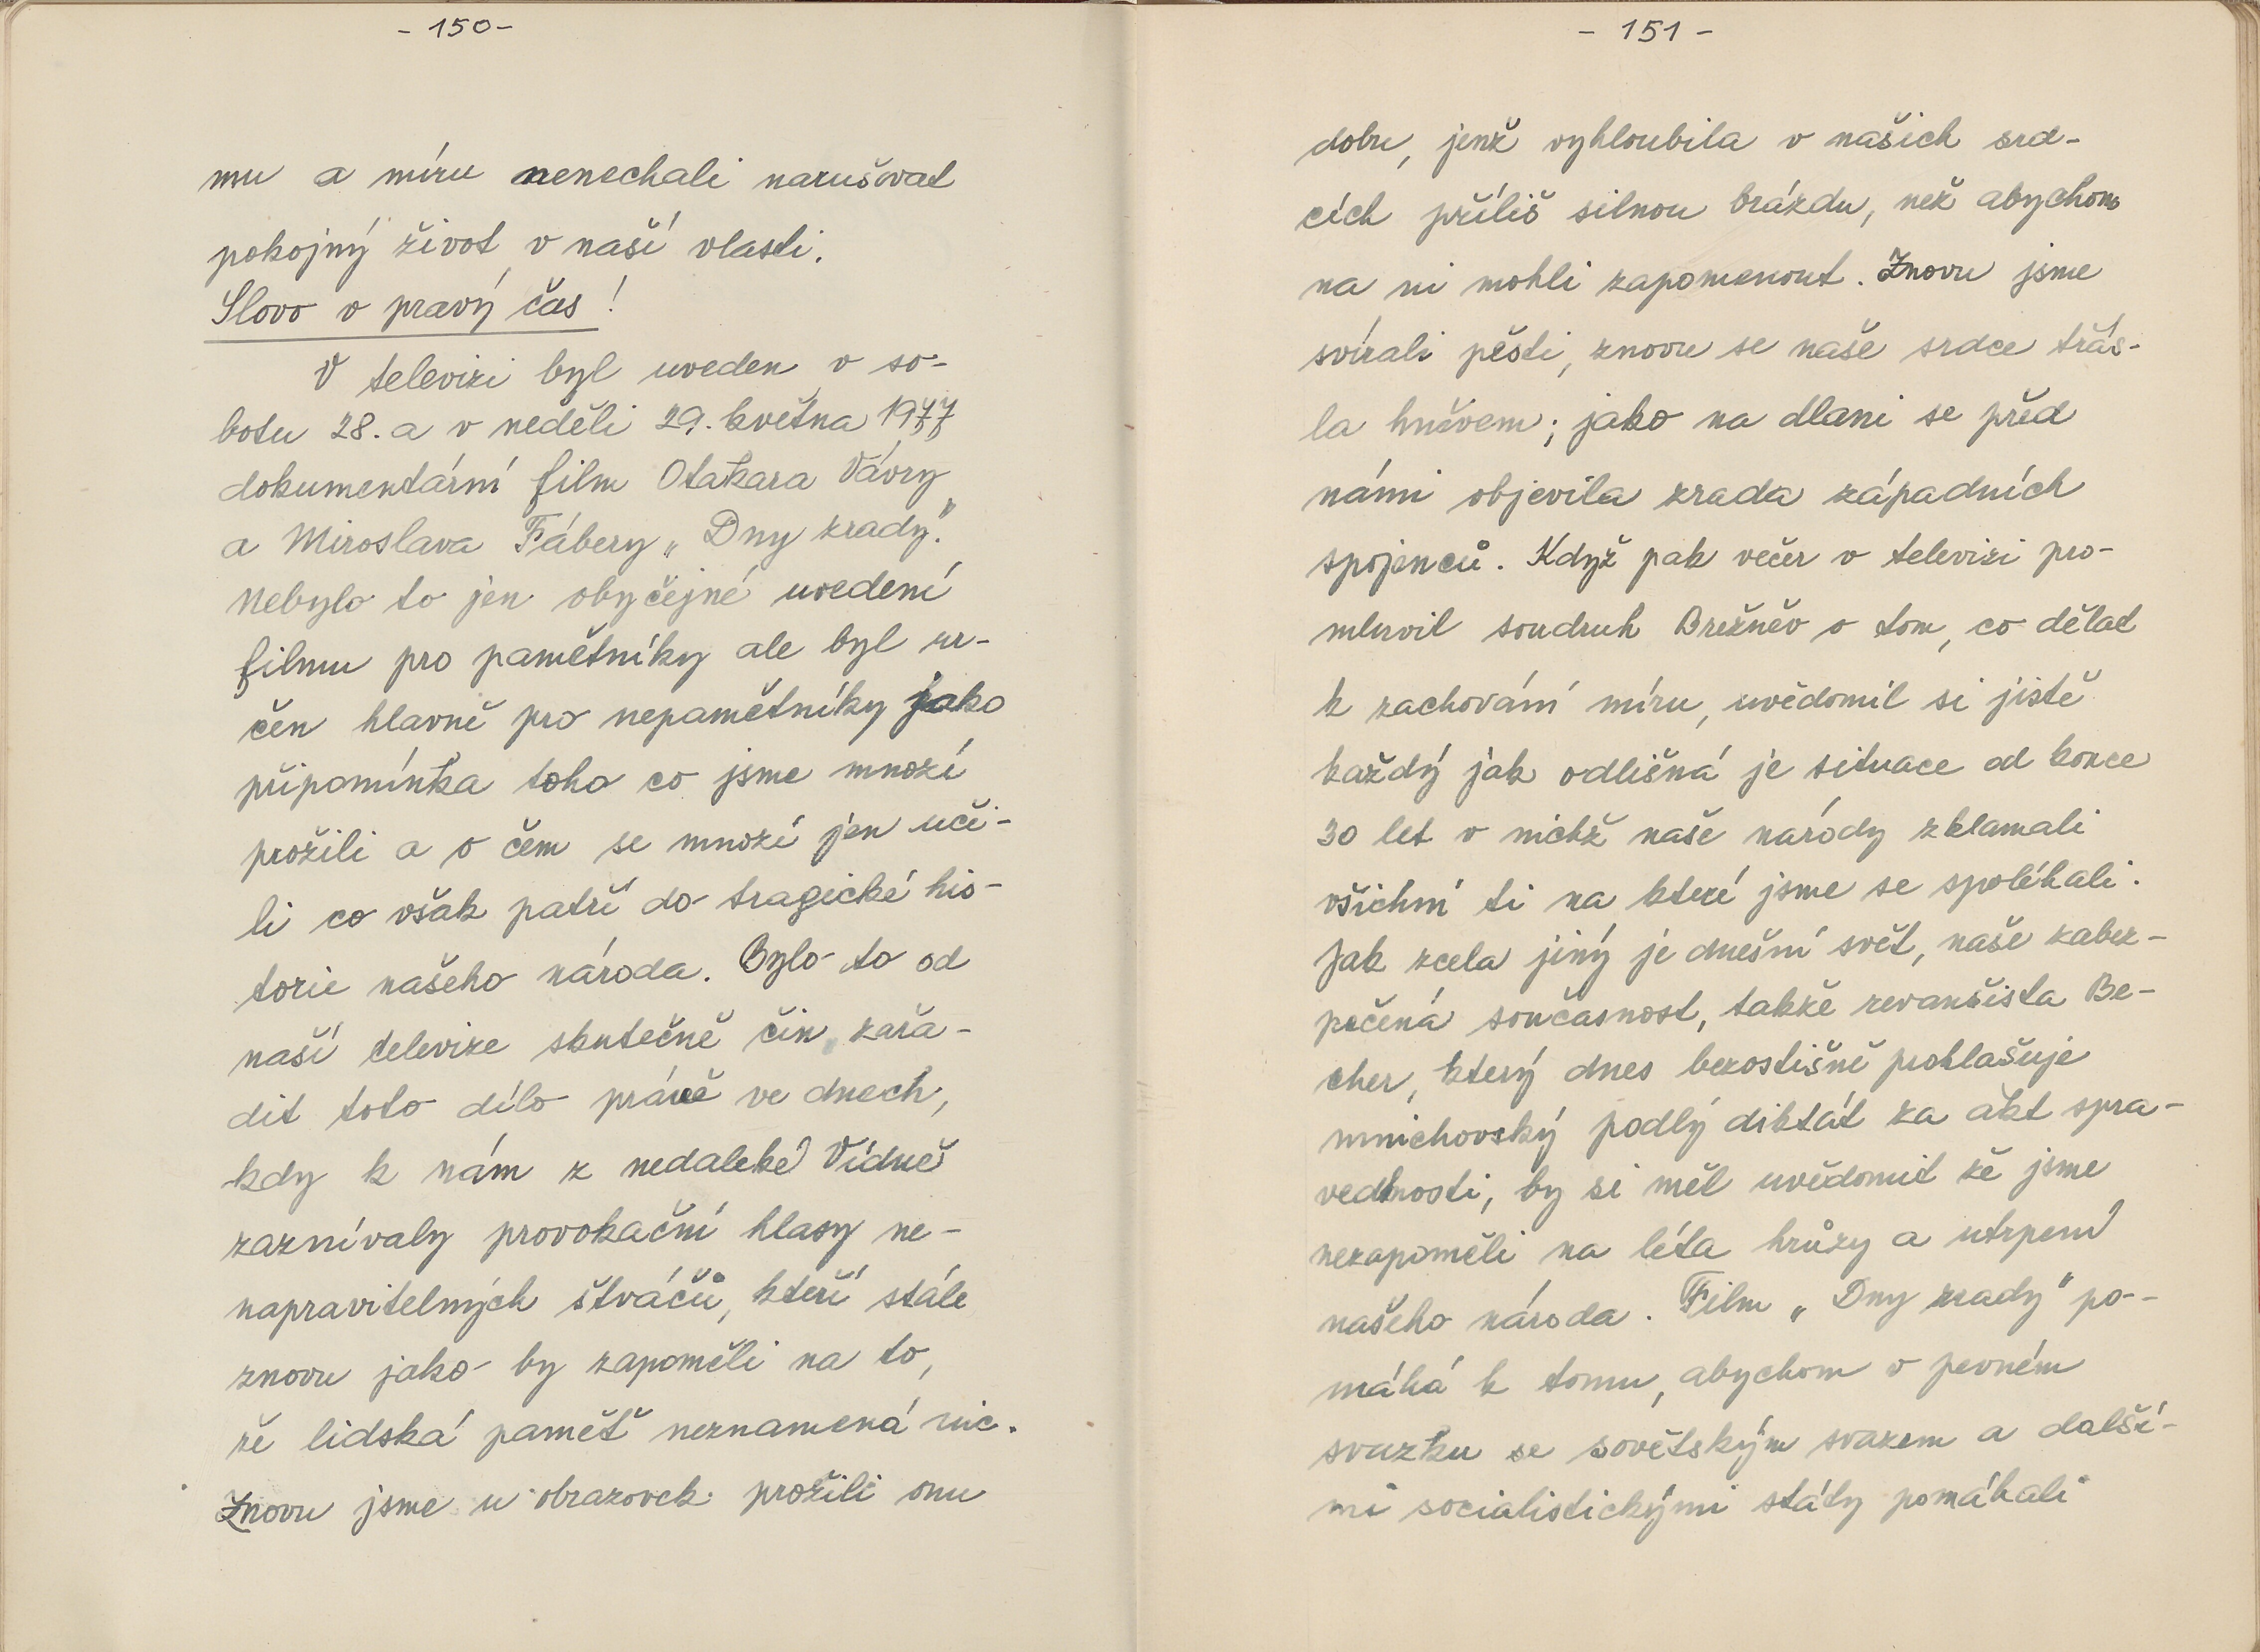 - 150 -
mu a míru nenechali narušovat
pokojný život v naší vlasti.
Slovo v pravý čas!
V televizi byl uveden v so-
botu 28. a v neděli 29. května 1977
dokumentární film Otakara Vávry
a Miroslava Fábery „Dny zrady".
Nebylo to jen obyčejné uvedení
filmu pro pamětníky ale byl ur-
čen hlavně pro nepamětníky jako
připomínka toho co jsme mnozí
prožili a o čem se mnozí jen uči-
li co však patří do tragické his-
torie našeho národa. Bylo to od
naší televize skutečně čin zařa-
dit toto dílo právě ve dnech,
kdy k nám z nedaleké Vídně
zaznívaly provokační hlasy ne-
napravitelných štváčů, kteří stále
znovu jako by zapoměli na to,
že lidská paměť neznamená nic.
Znovu jsme u obrazovek prožili onu
- 151 -
dobu, jenž vyhloubila v našich srd-
cích příliš silnou brázdu, než abychom
na ni mohli zapomenout. Znovu jsme
svírali pěsti, znovu se naše srdce třás-
la hněvem; jako na dlani se před
námi objevila zrada západních
spojenců. Když pak večer v televizi pro-
mluvil soudruh Brežněv o tom, co dělat
k zachování míru, uvědomil si jistě
každý jak odlišná je situace od konce
30 let v nichž naše národy zklamali
všichni ti na které jsme se spoléhali.
Jak zcela jiný je dnešní svět, naše zabez-
pečená současnost, takže revanšista Be-
cher, který dnes bezostišně prohlašuje
mnichovský podlý diktát za akt spra-
vedlnosti, by si měl uvědomit že jsme
nezapoměli na léta hrůzy a utrpení
našeho národa. Film „Dny zrady" po-
máhá k tomu, abychom v pevném
svazku se sovětským svazem a další-
mi socialistickými státy pomáhali